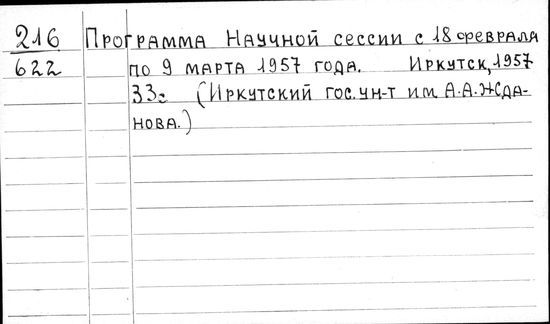 216 Программа Научной сессии с 18 февраля
622 по 9 марта 1957 года. Иркутск, 1957
33с (Иркутский гос. ун-т им. А.А. Жда-
нова.)